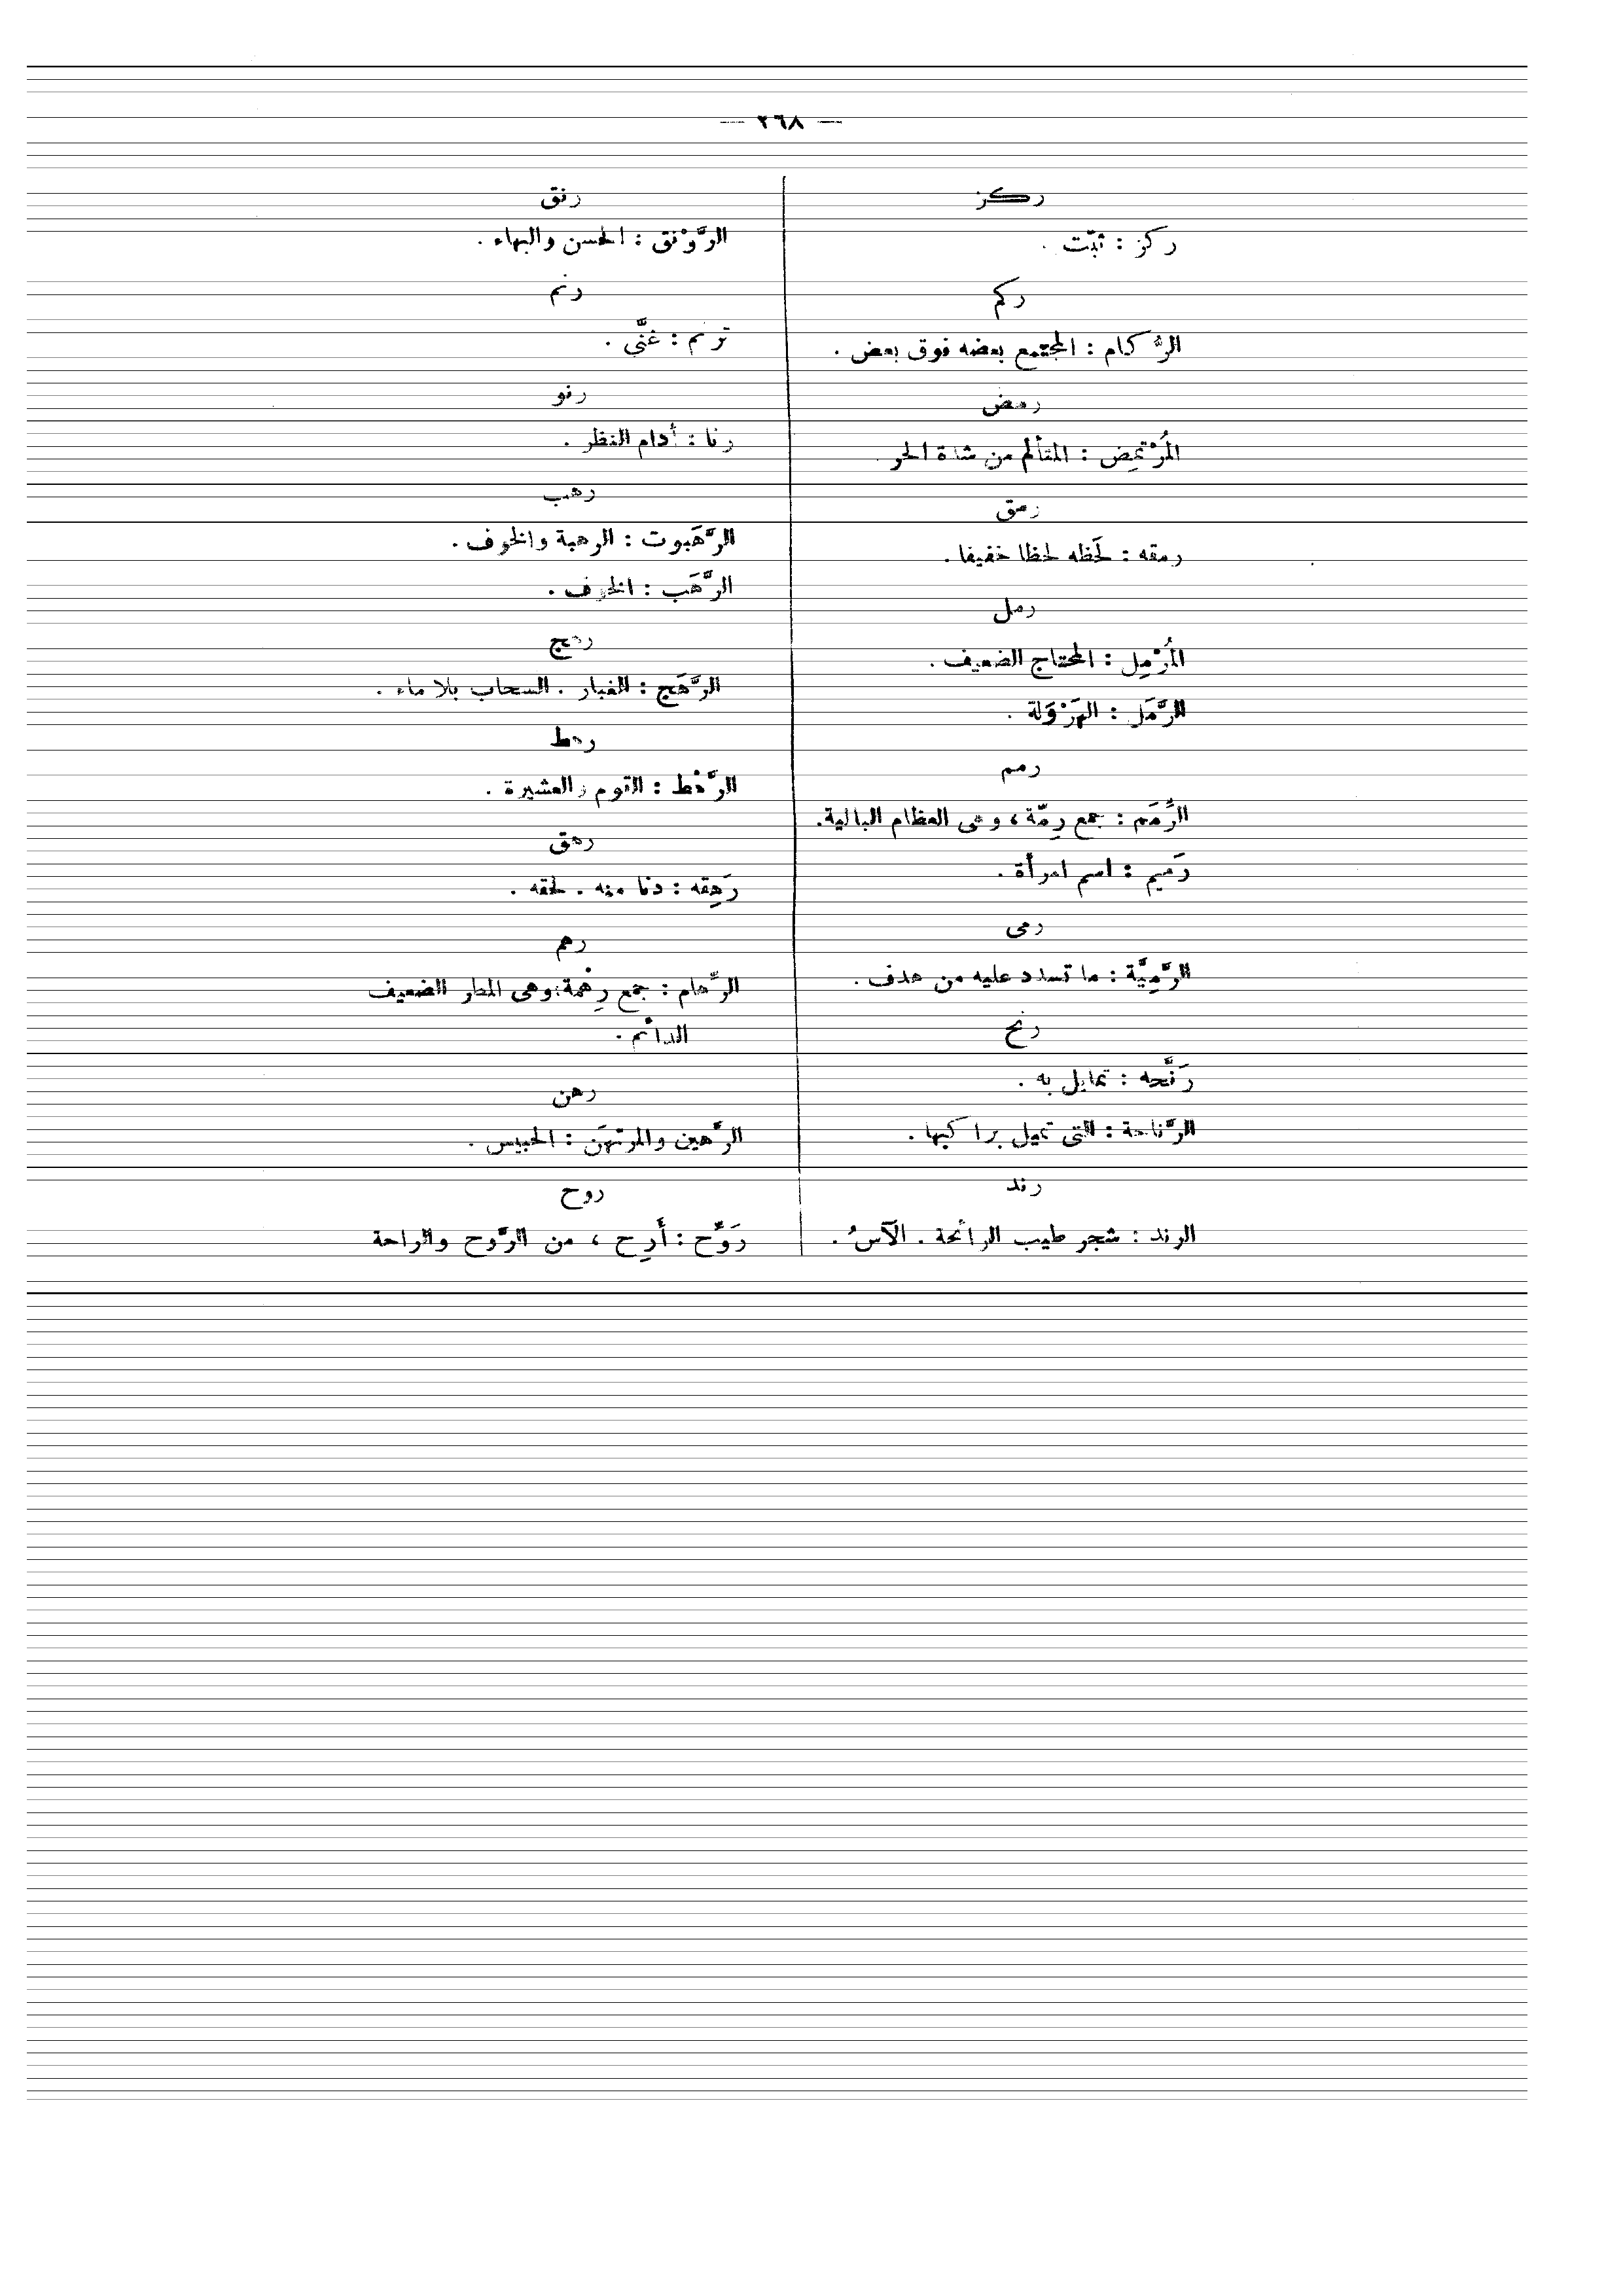 — ٢٦٨ —
ركز
ركز : ثبّت .
ركم
الرُّكام : المجتمع بعضه فوق بعض .
رمض
المُرْتمِض : المتألم من شدة الحر
رمق
رمقه : لَحَظه لحظا خفيفا .
رمل
المُرْمِل : المحتاج الضعيف .
الرَّمَل : الهَرْوَلة .
رمم
الرِّمَم : جمع رِمّة ، وهى العظام البالية.
رَميم : اسم امرأة .
رمى
الرَّمِيَّة : ما تسدد عليه من هدف .
رنح
رَنَّحه : تمايل به .
الرَّناحة : التى تميل براكبها .
رند
الرند : شجر طيب الرائحة . الآسُ .
رنق
الرَّوْنق : الحسن والبهاء .
رنم
ترنم : غنَّى .
رنو
رنا : أدام النظر .
رهب
الرَّهَبوت : الرهبة والخوف .
الرَّهَب : الخوف .
رهج
الرَّهَج : الغبار . السحاب بلا ماء .
رهط
الرَّهْط : القوم والعشيرة .
رهق
رَهِقه : دنا منه . لحقه .
رهم
الرِّهام : جمع رِهْمة، وهى المطر الضعيف
الدائم .
رهن
الرَّهين والمرتهَن : الحبيس .
روح
رَوِّح : أَرِح ، من الرَّوح والراحة